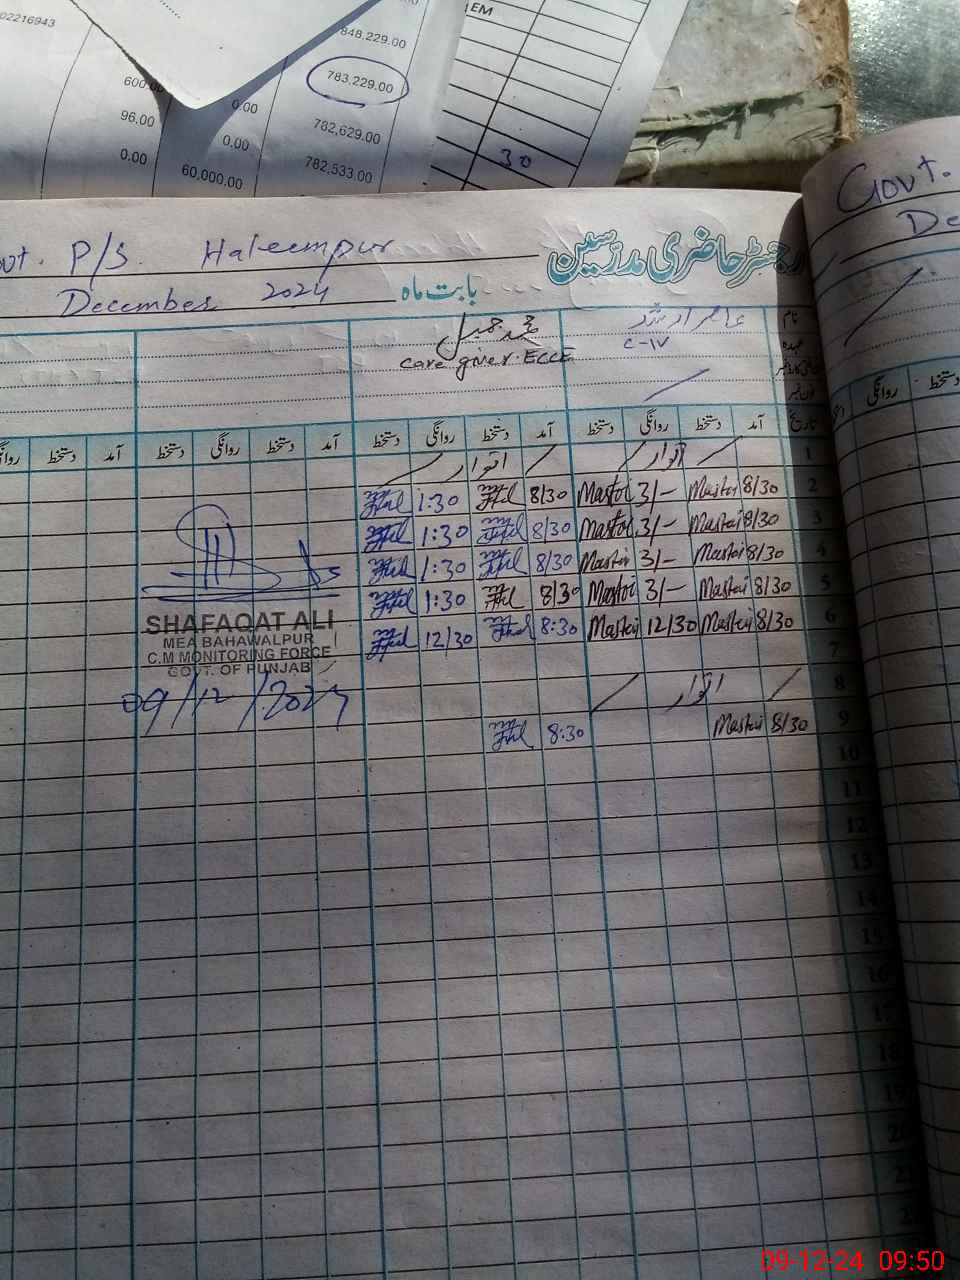 02216943
848,229.00
600.00 0.00 783,229.00
96.00 0.00 782,629.00
0.00 60,000.00 782,533.00
EM
30
Govt.
De
ovt. P/S. Haleempur
رجسٹر حاضری مدرسین
December 2024 بابت ماہ
نام عامر ارشد محمد جمیل
عہدہ C-IV care giver ECCE
تاریخ آمد دستخط روانگی دستخط آمد دستخط روانگی دستخط آمد دستخط روانگی دستخط آمد دستخط
روانگی دستخط
1 اتوار اتوار
2 8/30 3/- 8/30 1:30
3 8/30 3/- 8/30 1:30
4 8/30 3/- 8/30 1:30
5 8/30 3/- 8/30 1:30
6 8/30 12/30 8:30 12/30
7
8 اتوار
9 8/30 8:30
10
11
12
13
14
15
16
17
18
19
20
21
SHAFAQAT ALI
MEA BAHAWALPUR
C.M MONITORING FORCE
GOVT. OF PUNJAB
09/12/2024
09-12-24 09:50